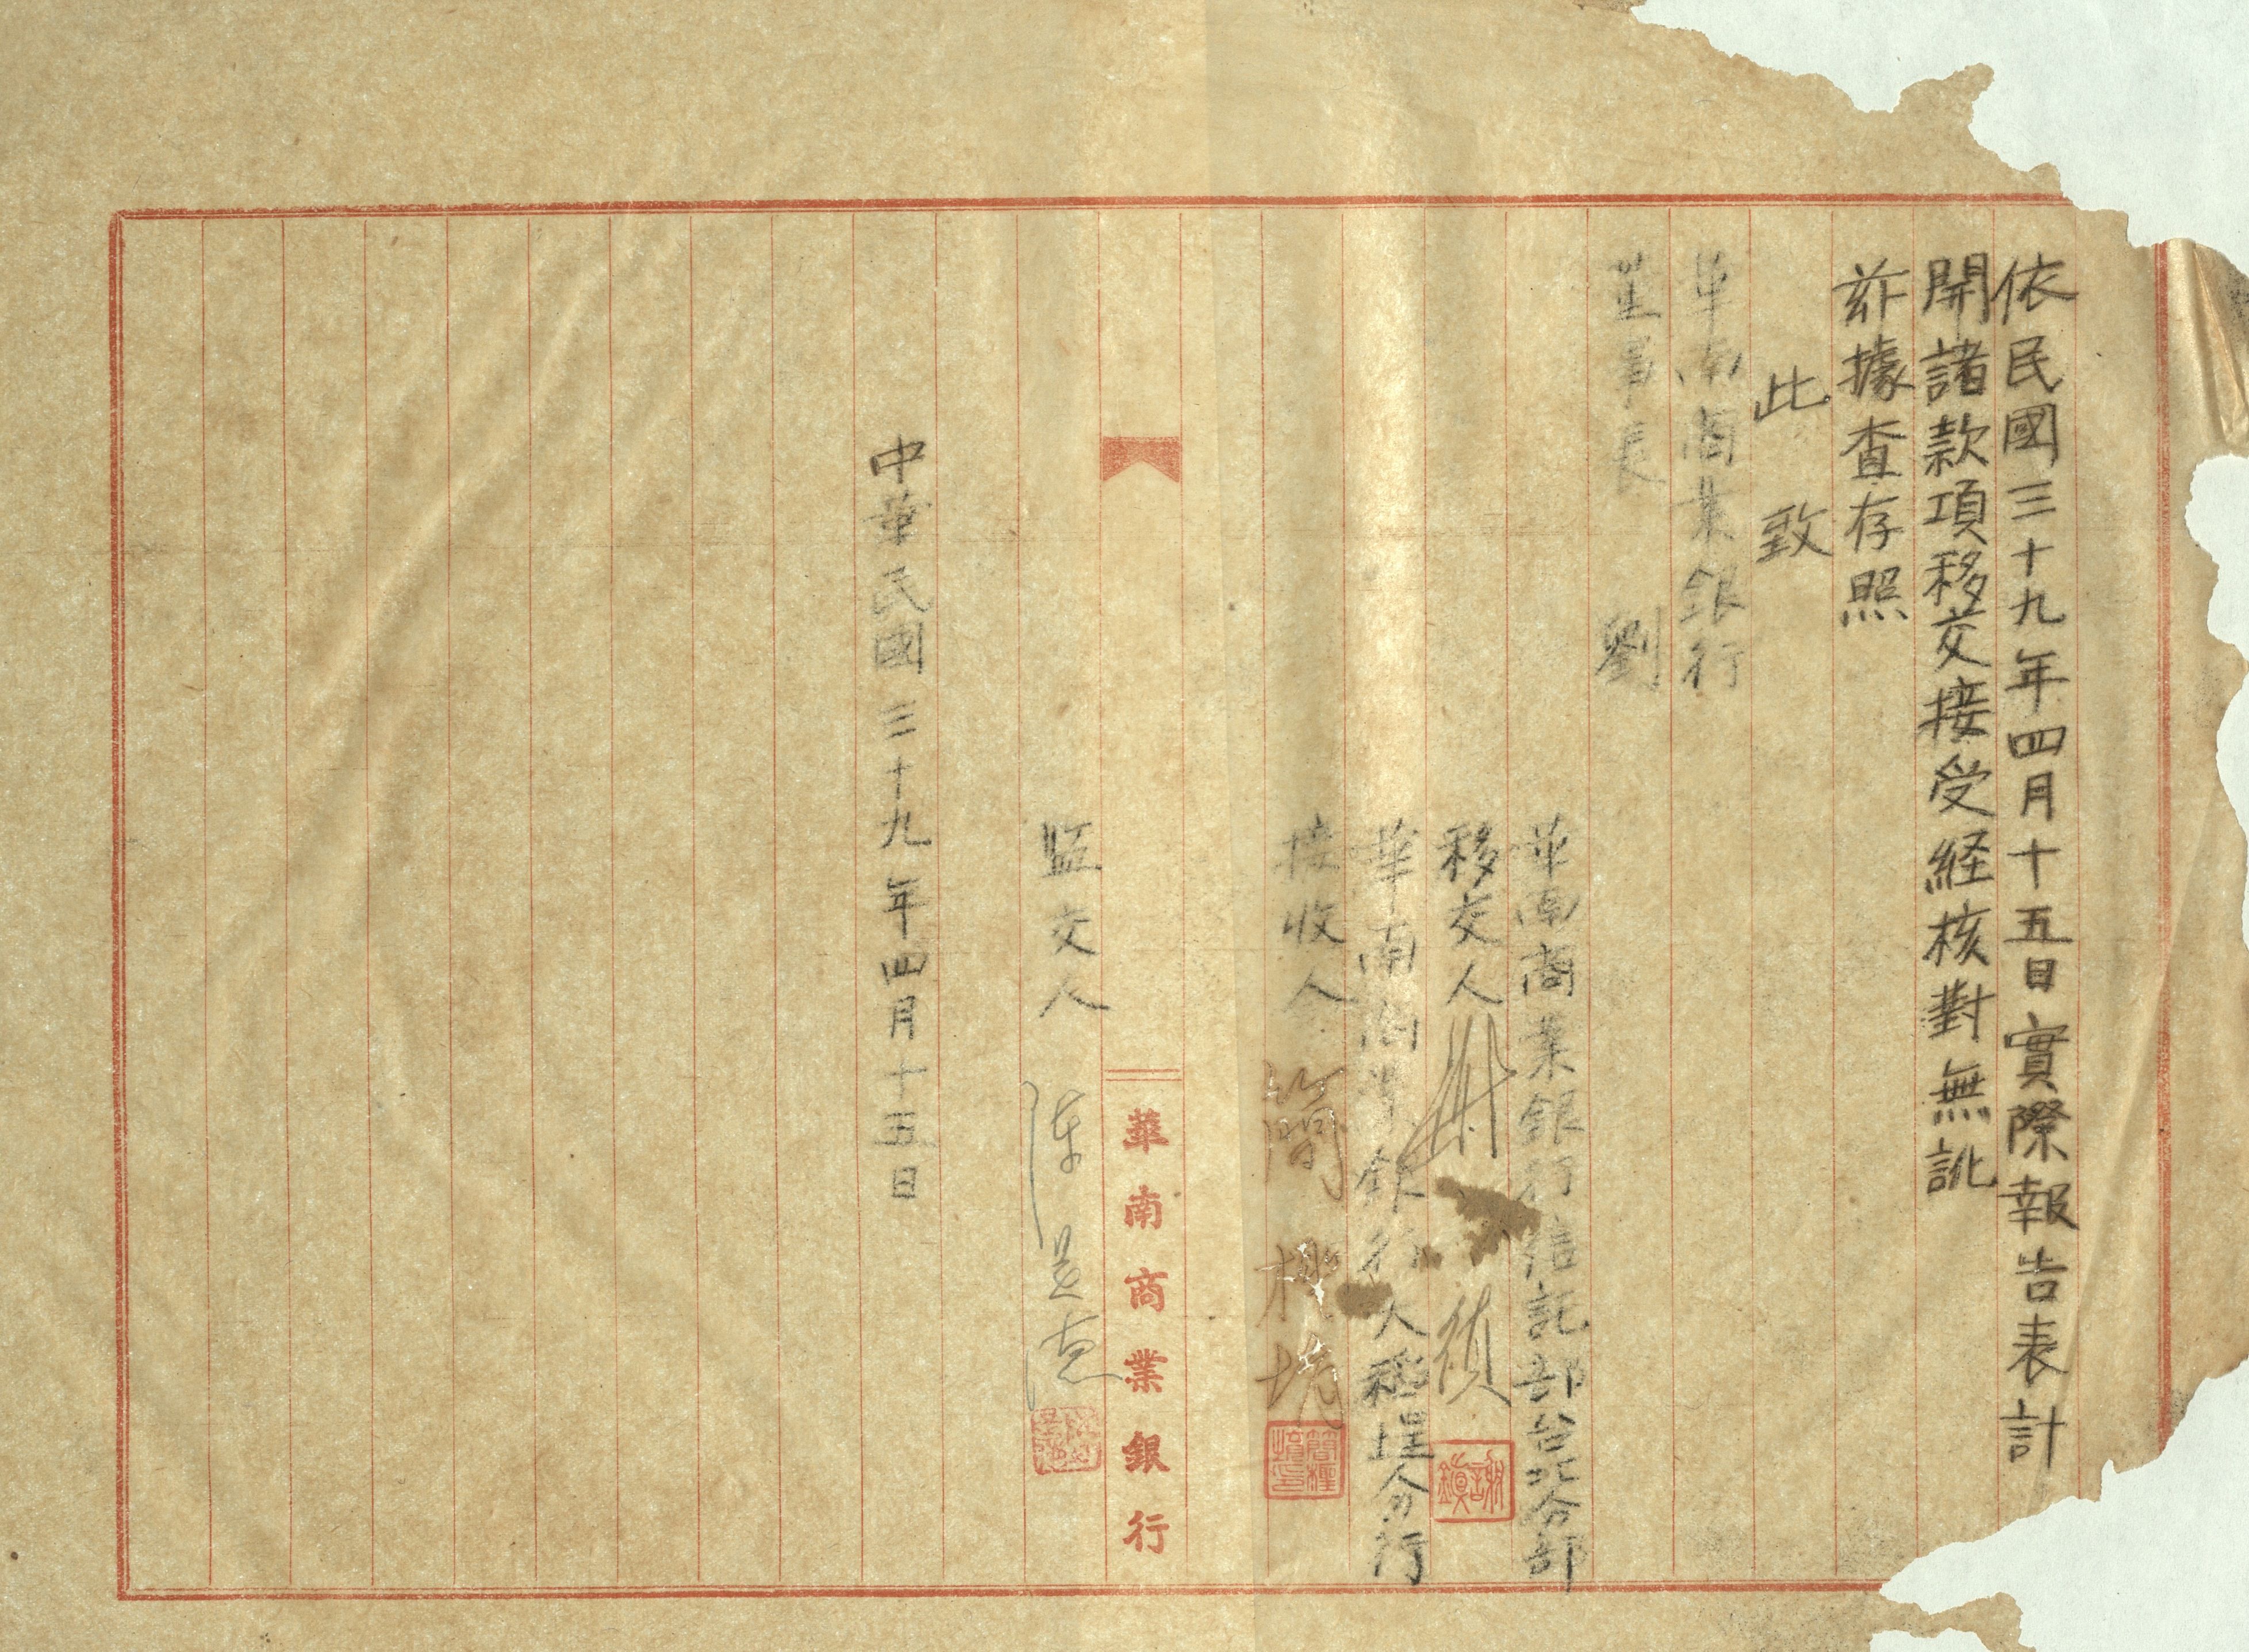 依民國三十九年四月十五日實際報告表計
開諸款項移交接受経核對無訛
玆據查存照
此致
華南商業銀行
董事長 劉
華南商業銀行信託部台北分部
移交人 謝 鎮
謝鎮
華南商業銀行大稻埕分行
接收人 簡 檉 堉
簡檉堉印
華南商業銀行
監交人 陳
中華民國三十九年四月十五日